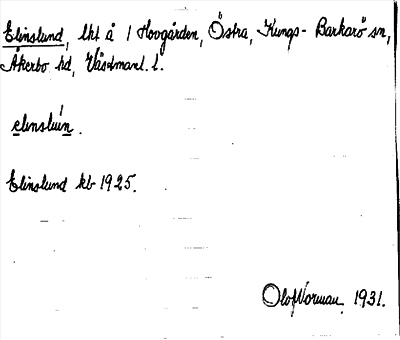 Elinslund, lht å 1 Hovgården, Östra, Kungs-Barkarö sn,
Åkerbo hd, Västmanl. l.
elinslún.
Elinslund kb 1925.
Olof Norman, 1931.